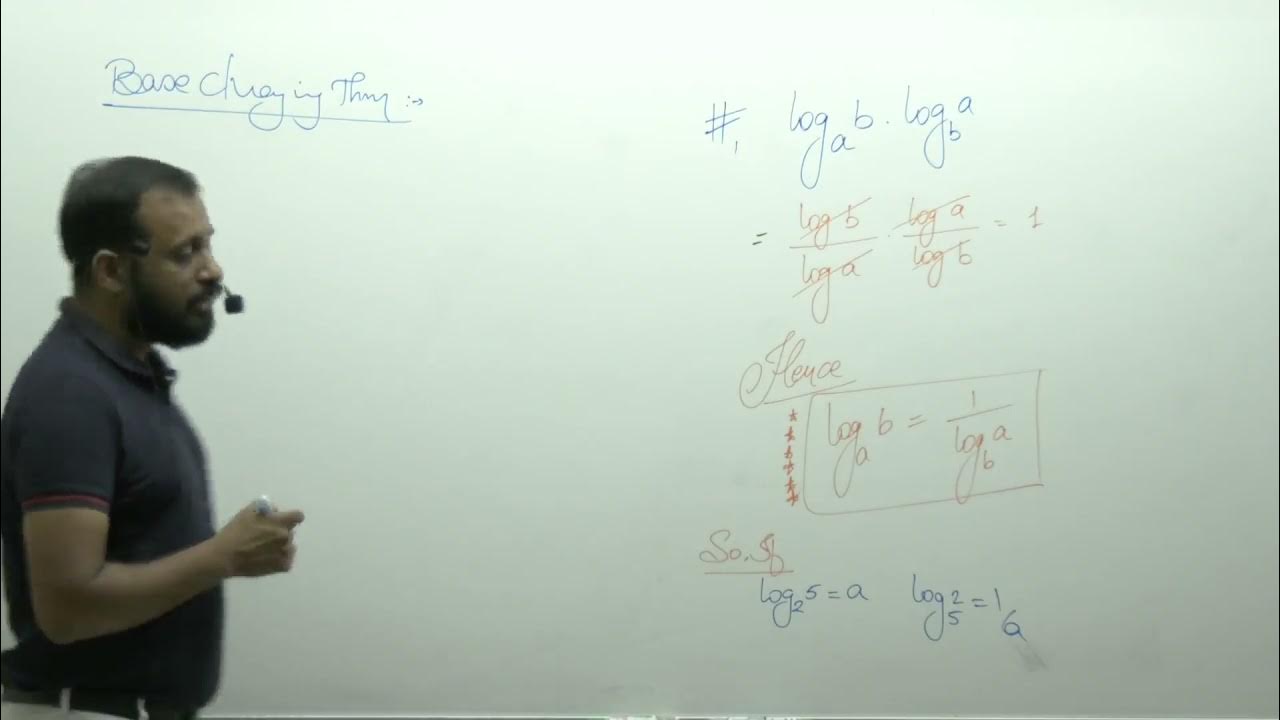 Base Changing Thm :->
#1 log_a b . log_b a
= log b / log a . log a / log b = 1
Hence
* * * * * * log_a b = 1 / log_b a
So, If
log_2 5 = a log_5 2 = 1/a